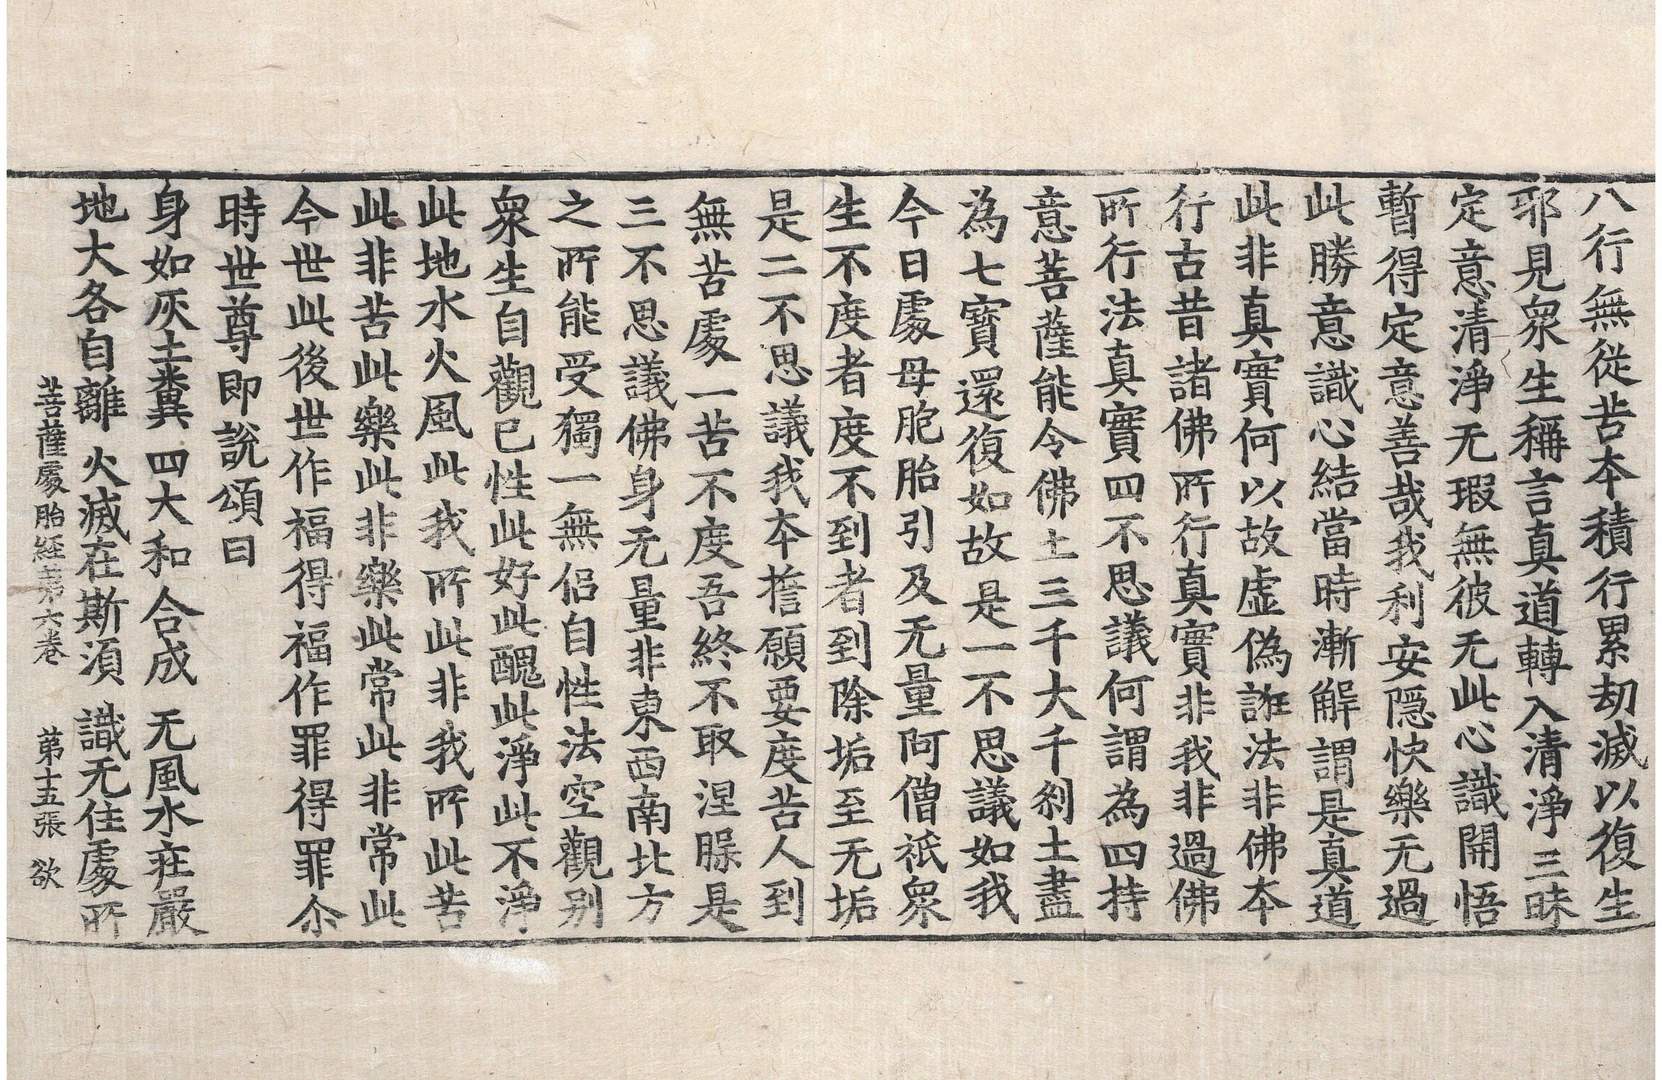 八行無從苦本積行累劫滅以復生
邪見衆生稱言真道轉入清淨三昧
定意清淨无瑕無彼无此心識開悟
暫得定意善哉我利安隱快樂无過
此勝意識心結當時漸解謂是真道
此非真實何以故虛偽誑法非佛本
行古昔諸佛所行真實非我非過佛
所行法真實四不思議何謂為四持
意菩薩能令佛土三千大千刹土盡
為七寶還復如故是一不思議如我
今日處母胞胎引及无量阿僧祇衆
生不度者度不到者到除垢至无垢
是二不思議我本擔願要度苦人到
無苦處一苦不度吾終不取涅槃是
三不思議佛身无量非東西南北方
之所能受獨一無侶自性法空觀別
衆生自觀已性此好此醜此淨此不淨
此地水火風此我所此非我所此苦
此非苦此樂此非樂此常此非常此
今世此後世作福得福作罪得罪尒
時世尊即說頌曰
身如灰土糞 四大和合成 无風水莊嚴
地大各自離 火滅在斯須 識无住處所
菩薩處胎經第六卷 第十五張 欲